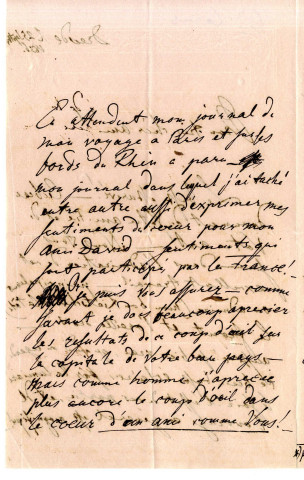 Dresde
P.S.
En attendant mon journal de
mon voyage à Paris et sur les
bords du Rhin à paru
mon journal dans lequel j'ai taché
entre autre aussi d'exprimer mes
sentiments de coeur pour mon
Ami David — sentiments qui
sont participés par la France! —
je puis vous assurer — comme
savant je dois beaucoup aprecier
les resultats de ce coup d'oeil sur
la capitale de votre beau pays —
mais comme homme j'aprecie
plus encore le coup d'oeil dans
le coeur d'un ami comme Vous! —